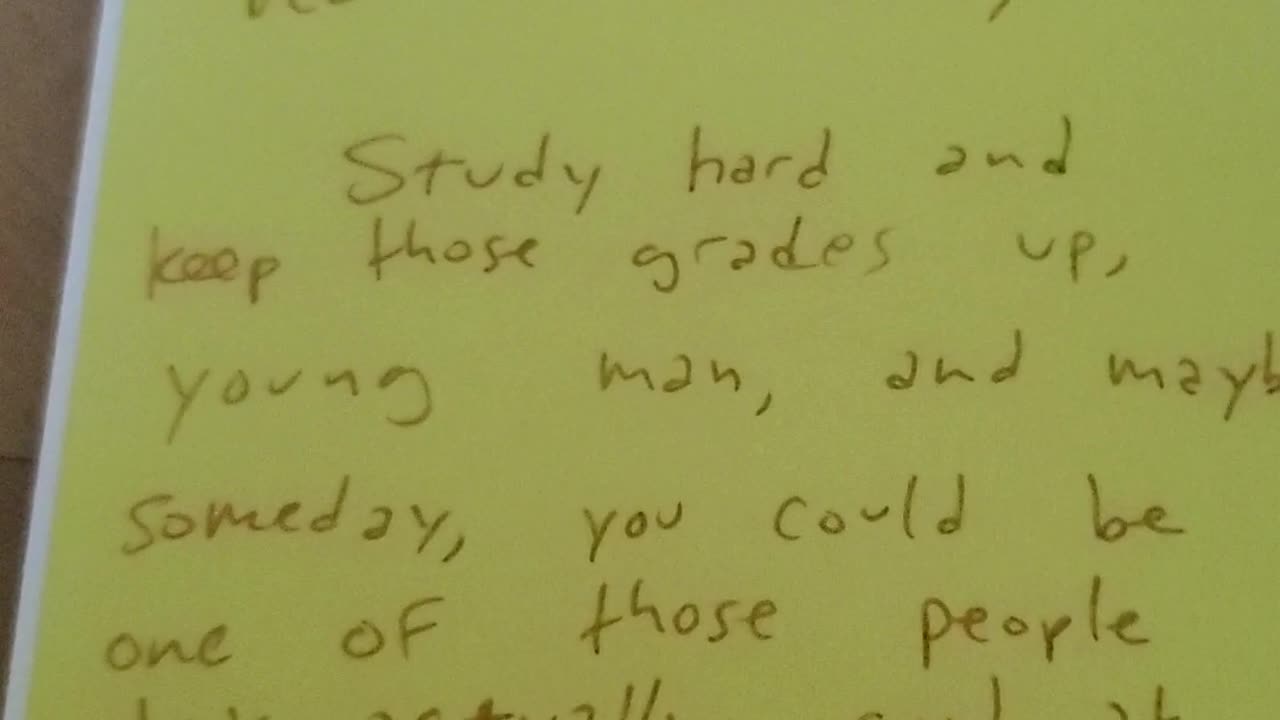 Study hard and
keep those grades up,
young man, and mayb
someday, you could be
one of those people
actually